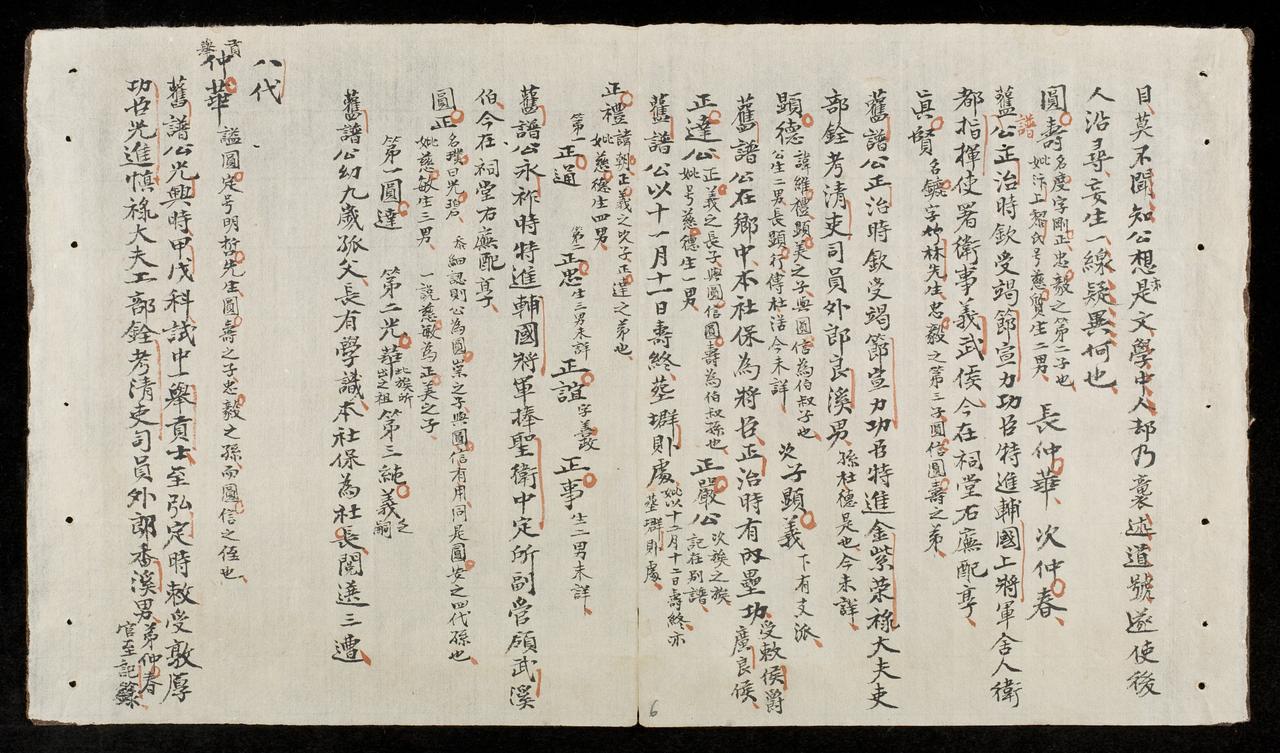 目莫不聞知公想亦是文學中人却乃褱述道號遂使後
人沿尋妄生一線疑異何也
圓壽 名度字剛正忠毅之第二子也 妣汴上黎氏号慈賢生二男 長仲華 次仲春
舊譜公正治時欽受竭節宣力功臣特進輔國上將軍舍人衛
都指揮使署衛事義武侯今在祠堂右廡配享
眞賢 名鏕字竹林先生忠毅之第三子圓信圓壽之弟
舊譜公正治時欽受竭節宣力功臣特進金紫荣祿大夫吏
部銓考清吏司員外郎良溪男 孫杜德是也今未詳
顯德 諱維禮顯美之子與圓信為伯叔子也 公生二男長顯行傳杜活今未詳 次子顯義 下有支派
舊譜公在鄉中本社保為將臣正治時有内壘功 受敕侯爵 廣良侯
正達公 正義之長子與圓信圓壽為伯叔孫也 妣号慈德生一男 正嚴公 次族之族 記在別譜
舊譜公以十一月十一日壽終𦵏塀則處 妣以十二月十二日壽終亦 𦵏塀則處
正禮 諱朝正義之次子正達之弟也 妣慈德生四男
第一正通 第二正忠 生三男未詳 正誼 字義政 正事 生二男未詳
舊譜公永祚時特進輔國將軍捧聖衛中定所副管領武溪
伯今在祠堂右廡配享
圓正 名璞曰光碧 叅細認則公為圓榮之子與圓信有用同是圓安之四代孫也 妣慈敏生三男 一説慈敏為正美之子
第一圓達 第二光華 此族所出之祖 第三純義 乏嗣
舊譜公幼九歲孤父長有學識本社保為社長閱選三遭
八代
貢舉
仲華 謚圓定号明哲先生圓壽之子忠毅之孫而圓信之侄也
舊譜公光興時甲戊科試中舉貢士至弘定時敕受敦厚
功臣光進慎祿大夫工部銓考清吏司員外郎香溪男 弟仲春 官至記錄
6